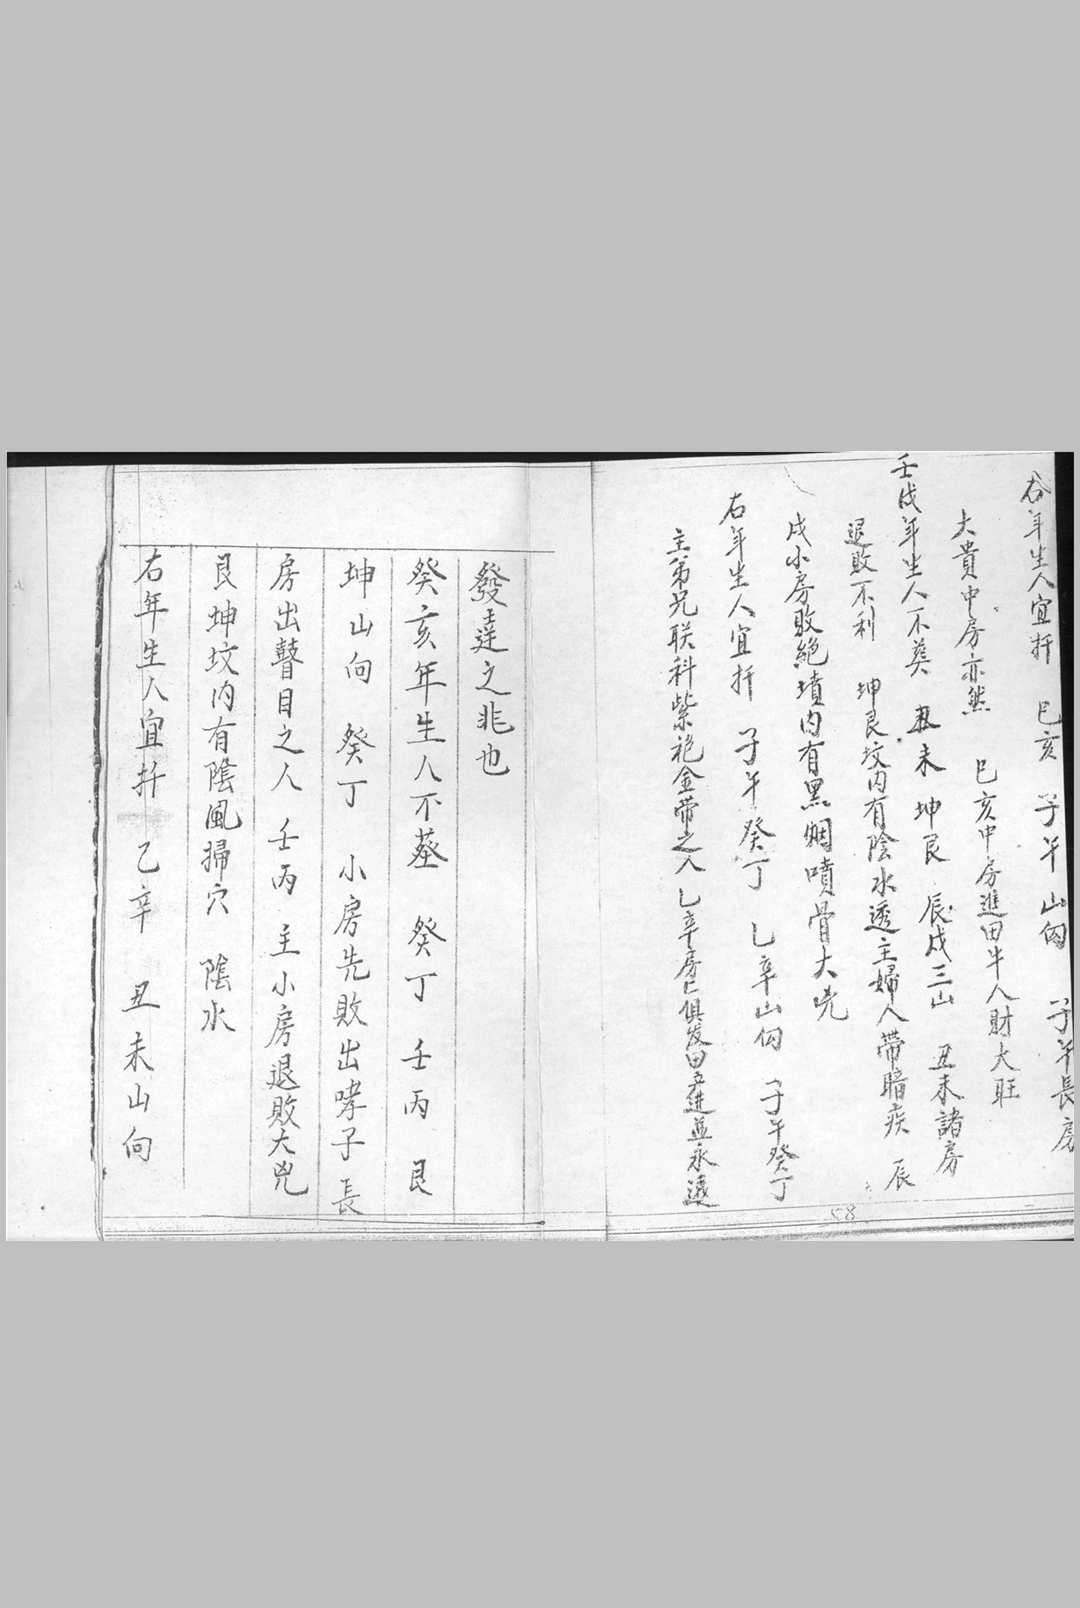 右年生人宜扦 巳亥 子午山向 子午長房
大貴中房亦然 巳亥中房進田牛人財大旺
壬戌年生人不葬 丑未 坤艮 辰戌三山 丑未諸房
退敗不利 坤艮坟内有陰水透主婦人帶暗疾 辰
戌小房敗絕墳内有黑烟噴骨大兇
右年生人宜扦 子午癸丁 乙辛山向 子午癸丁
主弟兄联科紫袍金帶之人 乙辛房亡俱发田产进益永遠
發達之非也
癸亥年生人不塟 癸丁 壬丙 艮
坤山向 癸丁 小房先敗出哮子長
房出瞽目之人 壬丙 主小房退敗大兇
艮坤坟内有陰風掃穴 陰水
右年生人宜扦 乙辛 丑未山向
58